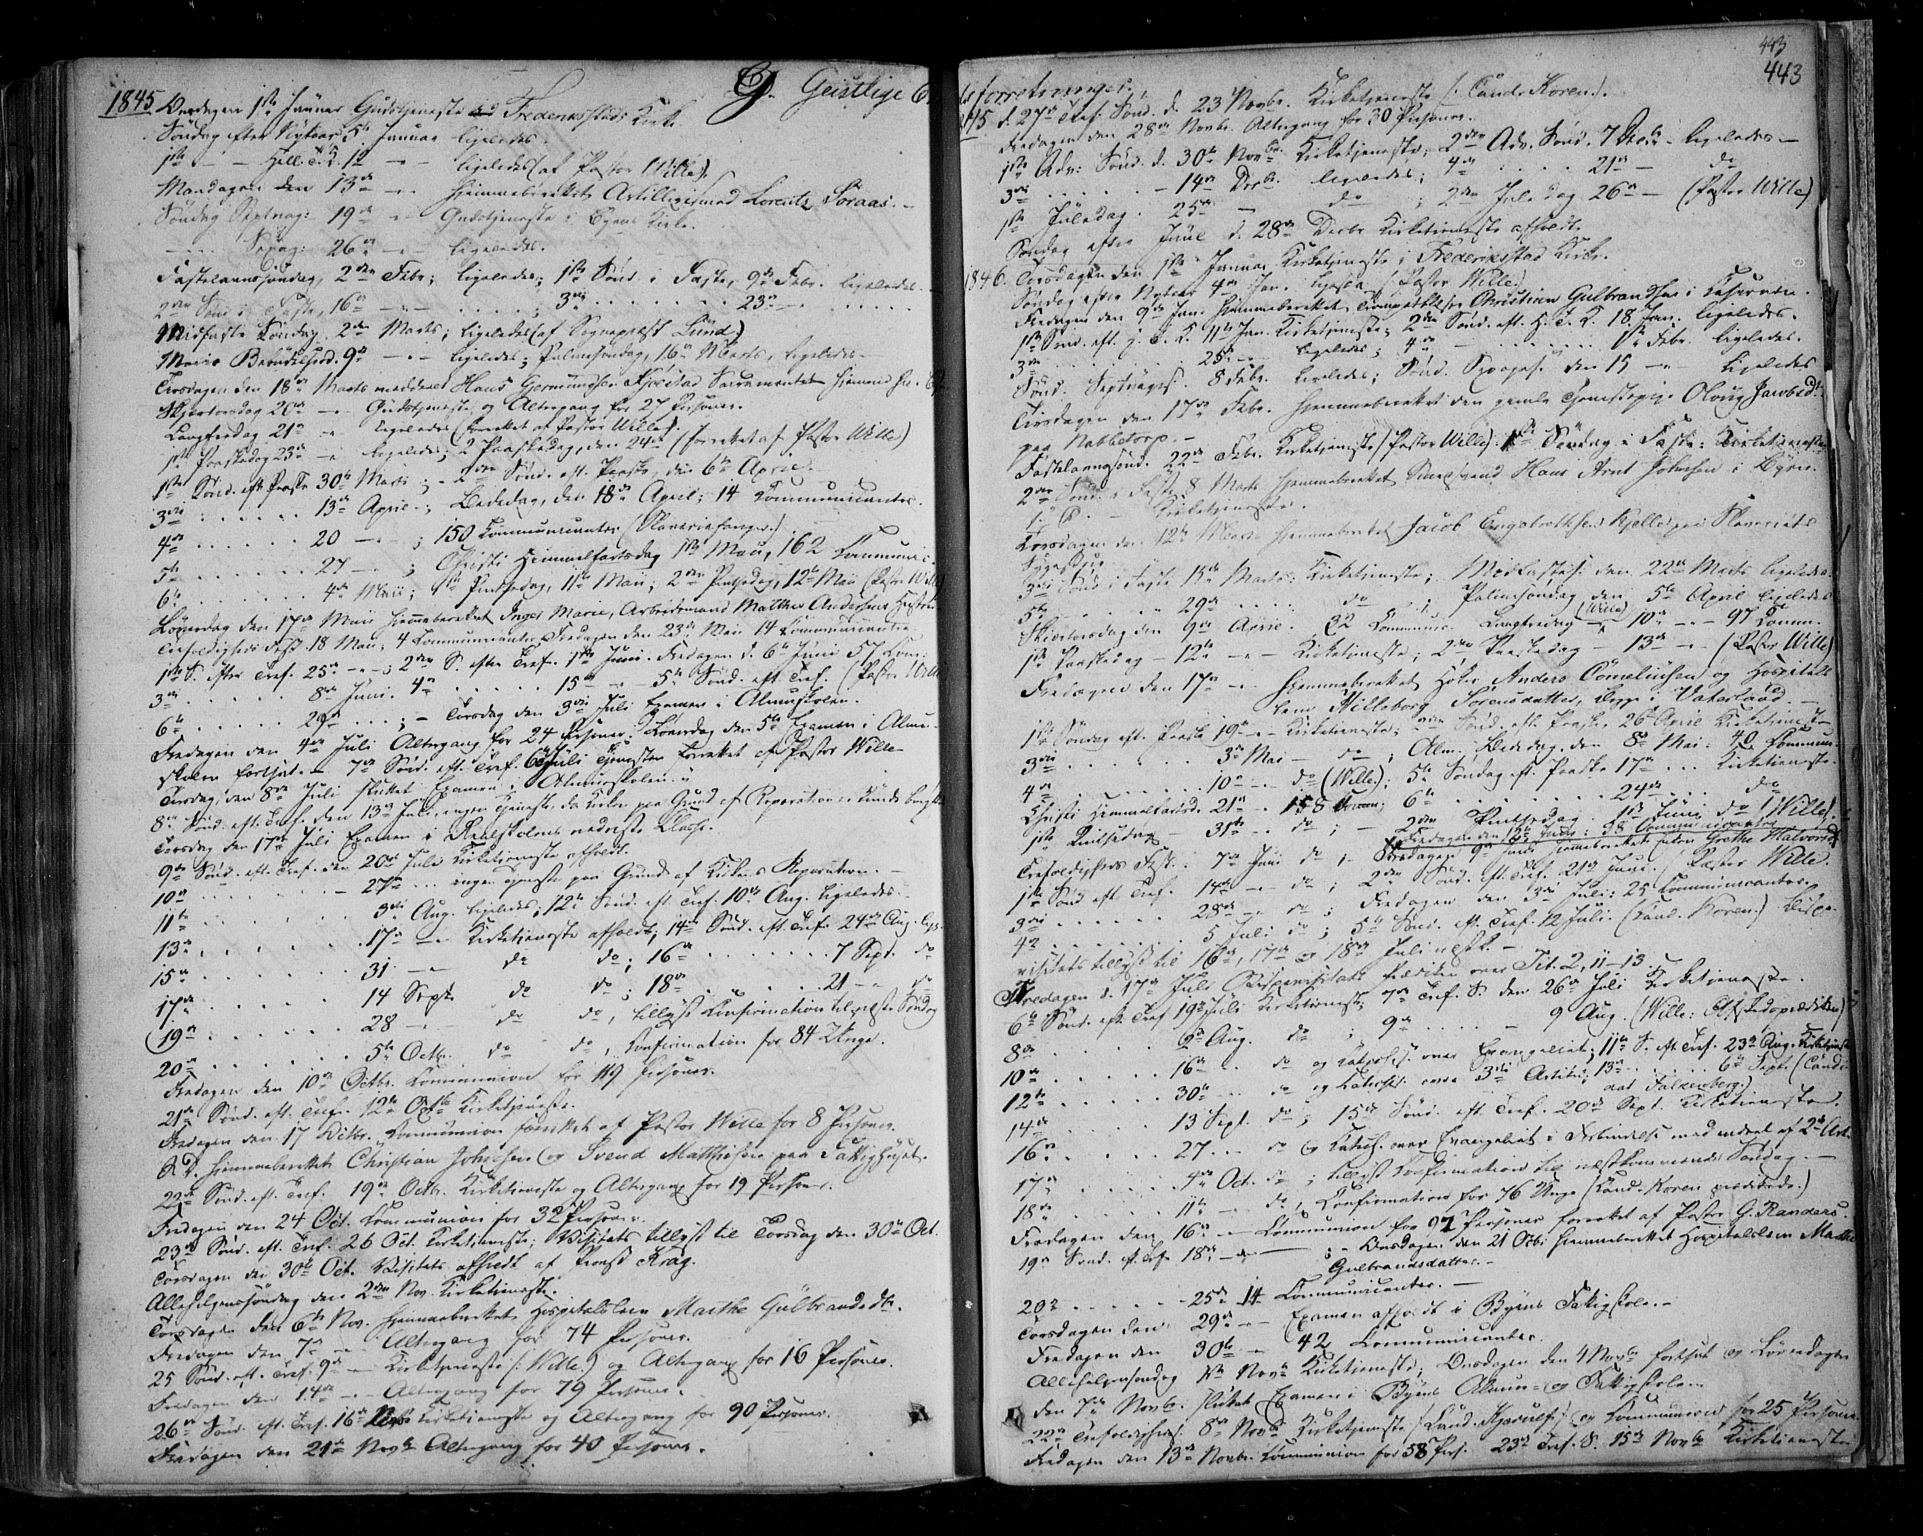 G. Geistlige
1845 Onsdagen 1ste Januar Gudstjeneste ved Frederiksstads Kirke
Søndag efter Nytaar, 5te Januar ligeledes.
1ste - - Hell. T. K. 12 - - ligeledes (af Pastor Wille).
Mandagen den 13de - - hjemmeberettet Artillerimand Lorentz Soraas.
Søndag Septuag: 19de - - Gudstjeneste i Byens Kirke.
- - Sexag: 26de - - ligeledes.
Fastelavnssøndag, 2den Febr; ligeledes; 1ste Sønd. i Faste, 9de Febr. ligeledes.
2den Sønd. i Faste, 16de - - ; 3die . . . . 23de - -
Midfaste Søndag, 2den Marts; ligeledes (af Sogneprest Lund)
Mariæ Bebudelsesd. 9de - - ligeledes; Palmesøndag, 16de Marts, ligeledes.
Tirsdagen den 18de Marts meddeelt Hans Sacramentet
Skjertorsdag 20de - - Gudstjeneste og Altergang for 27 Personer.
Langfredag 21de - - ligeledes (forrettet af Pastor Wille).
1ste Paaskedag 23de - - ligeledes; 2 Paaskedag, den 24de (forrettet af Pastor Wille)
1ste Sønd. eft. Paaske 30te Marts; - 2den Sønd. eft. Paaske, den 6te April.
3die . . . . 13de April - ; Bededag, den 18de April; 14 Communicanter.
4de . . . . 20 - - ; 150 Communicanter (Slaveriefanger.)
5te . . . . 27 - - ; Christi Himmelfartsdag 1ste Maii, 162 Communic.
6te . . . . 4de Maii; 1ste Pintsedag, 11te Maii; 2den Pintsedag, 12te Maii (Pastor Wille)
Løverdag den 17de Maii hjemmeberettet Inger Marie, Arbeidsmand Mathes Andersens Hustru
Trefoldigheds Fest 18 Maii, 4 Communicanter; Fredagen den 23de Maii 14 Communicanter
1ste S. efter Tref. 25de - - ; 2den S. efter Tref. 1ste Juni. Fredagen d. 6te Juni 57 Com:
3die . . . . 8de Juni. 4de . . . . 15de - - 5te Sønd. eft. Tref. (Pastor Wille
6te . . . . 29de . . ; - Torsdag den 3die Juli Examen i Almuskolen.
Fredagen den 4de Juli Altergang for 24 Personer. Løverdag den 5te Examen i Almu-
skolen fortsat. - 7de Sønd. eft. Tref. 6te Juli Tjenesten forrettet af Pastor Wille
Tirsdag, den 8de Juli sluttet Examen i Almueskolen.
8de Sønd. eft. Tref. den 13de Juli, ingen Tjeneste, da Kirken paa Grund af Reparation ei kunde benyttes
Torsdag den 17de Juli Examen i Realskolens nederste Classe.
9de Sønd. eft. Tref. den 20de Juli Kirketjeneste afholdt.
10de . . . . - 27de . . . ingen Tjeneste paa Grund af Kirkens Reparation.
11te . . . . 3die Aug. ligeledes; 12te Sønd. eft. Tref. 10de Aug. ligeledes.
13de . . . . 17de - - Kirketjeneste afholdt; 14de Sønd. eft. Tref. 24de Aug. lige
15de . . . . 31 - - do do; 16de . . . . 7 Sept. do
17de . . . . 14 Sept. do do; 18de . . . . 21 - - do
19de . . . . 28 - - do do, tillyst Confirmation til næste Søndag
20de . . . . 5te Octbr. do do, Confirmation for 84 Unge.
Fredagen den 10de Octbr. Communion for 119 Personer.
21de Sønd. eft. Tref. 12te Octbr Kirketjeneste.
Fredagen den 17 Octbr. Communion forrettet af Pastor Wille for 8 Personer.
S. D. hjemmeberettet Christian Johnsen og Svend Matthisen paa Fattighuset.
22de Sønd. eft. Tref. 19de Octbr. Kirketjeneste og Altergang for 19 Personer.
Fredagen den 24 Oct. Communion for 32 Personer.
23de Sønd. eft. Tref. 26 Oct. Kirketjeneste; Visitats tillyst til Torsdag den 30te Oct.
Torsdagen den 30te Oct. Visitats afholdt af Provst Krag.
Allehelgenssøndag den 2den Nov. Kirketjeneste.
Torsdagen den 6te Nov. hjemmeberettet Hospitalslem Marthe Gulbrandsdtr.
Fredagen den 7de - - Altergang for 74 Personer.
25 Sønd. eft. Tref. 9de - - Kirketjeneste (: Wille:) og Altergang for 16 Personer.
Fredagen den 14de - - Altergang for 79 Personer.
26de Sønd. eft. Tref. 16de Novbr Kirketjeneste og Altergang for 90 Personer.
Fredagen den 21de Novbr Altergang for 40 Personer.
443
443
forretninger.
1845 d. 27de Tref: Sønd. d. 23 Novbr. Kirketjeneste (: Cand. Koren).
Fredagen den 28de Novbr. Altergang for 30 Personer.
1ste Adv: Sønd. d. 30te Novbr. Kirketjeneste; 2den Adv. Sønd. 7 Decbr. ligeledes -
3die . . . . - 14de Decbr. ligeledes; 4de . . . . 21de - do
1ste Juledag. 25de - do ; 2den Juledag 26de - (Pastor Wille)
Søndag efter Juul d. 28de Decbr Kirketjeneste afholdt.
1846. Torsdagen den 1ste Januar Kirketjeneste i Frederiksstad Kirke.
Søndag efter Nytaar 4de Jan. ligeledes (Pastor Wille)
Fredagen den 9de Jan. hjemmeberettet Christian Gulbrandsen i Casernen.
1ste Sønd. eft. H. T. K. 11te Jan. Kirketjeneste; 2den Sønd. eft. H. T. K. 18 Jan. ligeledes.
3die . . . . 25de - - ligeledes; 4de . . . . 1ste Febr. ligeledes.
Sønd. Septuages. 8 Febr. ligeledes; Sønd. Sexages. den 15 - - ligeledes
Tirsdagen den 17de Febr. hjemmeberettet den gamle Tjenestepige Oloug Jacobsdtr
paa Nabbetorp. -
Fastelavnssønd. 22de Febr. Kirketjeneste (Pastor Wille): 1ste Søndag i Faste: Kirketjeneste
2den Sønd. i Faste 8 Marts hjemmeberettet Hans Arnt Johnsen i Byen.
Kirketjeneste.
Torsdagen den 12te Marts hjemmeberettet Jacob paa Slaveriets
Sygehuus.
3die Sønd. i Faste 15de Marts: Kirketjeneste; Midfastes. den 22de Marts ligeledes
5te . . . . 29de . . . . do ; Palmesøndag den 5te April ligeledes
Skjertorsdag den 9de April. 32 Commun. Langfredag (Wille) 10de - - 97 Comm.
1ste Paaskedag - 12te - - Kirketjeneste; 2den Paaskedag - 13de - - (Pastor Wille)
Fredagen den 17de - - hjemmeberettet Anders Corneliusen og Hospitals-
lem Willeborg Sørensdatter, i Vaterland. -
1ste Søndag eft. Paaske 19de - - Kirketjeneste; 2den Sønd. eft. Paaske 26de April Kirketjeneste
3die . . . . 3die Mai - do ; Alm. Bededag, den 8de Mai: 40 Commun.
4de . . . . 10de - - do (Wille); 5te Søndag eft. Paaske 17de . . . Kirketjeneste.
Christi Himmelfartsd. 21de - 158 Comm; 6te . . . . 24de . . . do
1ste Pintsedag - 31te . . do ; - 2den Pintsedag. 1ste Juni do (Wille).
Fredagen den 12te Juni: 38 Communicanter.
Trefoldigheds Fest. 7de Juni do ; - Tirsdagen 9de Juni hjemmeberettet Grethe Halvorsd
1ste Sønd. eft. Tref. 14de - - do ; 2den Sønd. eft. Tref. 21de Juni. (Pastor Wille.
3die . . . . 28de - - do ; Fredagen den 3die Juli: 25 Communicanter.
4de . . . . 5 Juli do ; 5te Sønd. eft. Tref. 12 Juli. (Cand. Koren) Bispe-
visitats tillyst til 16de, 17de og 18de Juli næstk. -
Fredagen d. 17de Juli Bispevisitats prædiken over Tit. 2, 11-13.
6te Sønd. eft. Tref. 19de Juli Kirketjeneste; 7de Tref. S. den 26de Juli Kirketjeneste.
8de . . . . 2de Aug. do ; 9de . . . . - 9 Aug. (Wille: Afskedsprædiken)
10de . . . . 16de - do og Catechs. over Evangeliet; 11te S. eft. Tref. 23de Aug. Kirketjeneste
12te . . . . 30te - do og Catechs. over 3die Artikel; 13de . . . . 6te Sept. (Candi-
dat Falkenberg.)
14de . . . . 13 Sept. do ; 15de Sønd. eft. Tref. 20de Sept. Kirketjenesten.
16de . . . . 27 . . do og Catech. over Evangeliet i Forbindelse med endeel af 2de Art.
17de . . . . 4de Oct. do ; tillyst Confirmation til næstkommende Søndag. -
18de . . . . 11te - do, Confirmation for 76 Unge (Cand. Koren prædikede.)
Fredagen den 16de - - Communion for 97 Personer forrettet af Pastor G. Randers.
19de Sønd. eft. Tref. 18de - do - ; - Onsdagen den 21 Octbr hjemmeberettet Hospitalslem Marthe
Gulbrandsdatter. -
20de . . . . 25de 14 Communicanter. -
Torsdagen den 29de - - Examen afholdt i Byens Fattigskole. -
Fredagen den 30te - - 42 Communicanter.
Allehelgensøndag 1ste Novbr Kirketjeneste; Onsdagen den 4 Novbr fortsat og Løverdagen
den 7de Novbr. sluttet Examen i Byens Almue- og Fattigskole. -
22de Trefoldigheds. 8de Novbr Kirketjeneste (Cand. Hjorulf) og Communion for 25 Personer
Fredagen den 13de Novbr. Communion for 58 Pers. 23de Tref. S. 15de Novbr Kirketjeneste